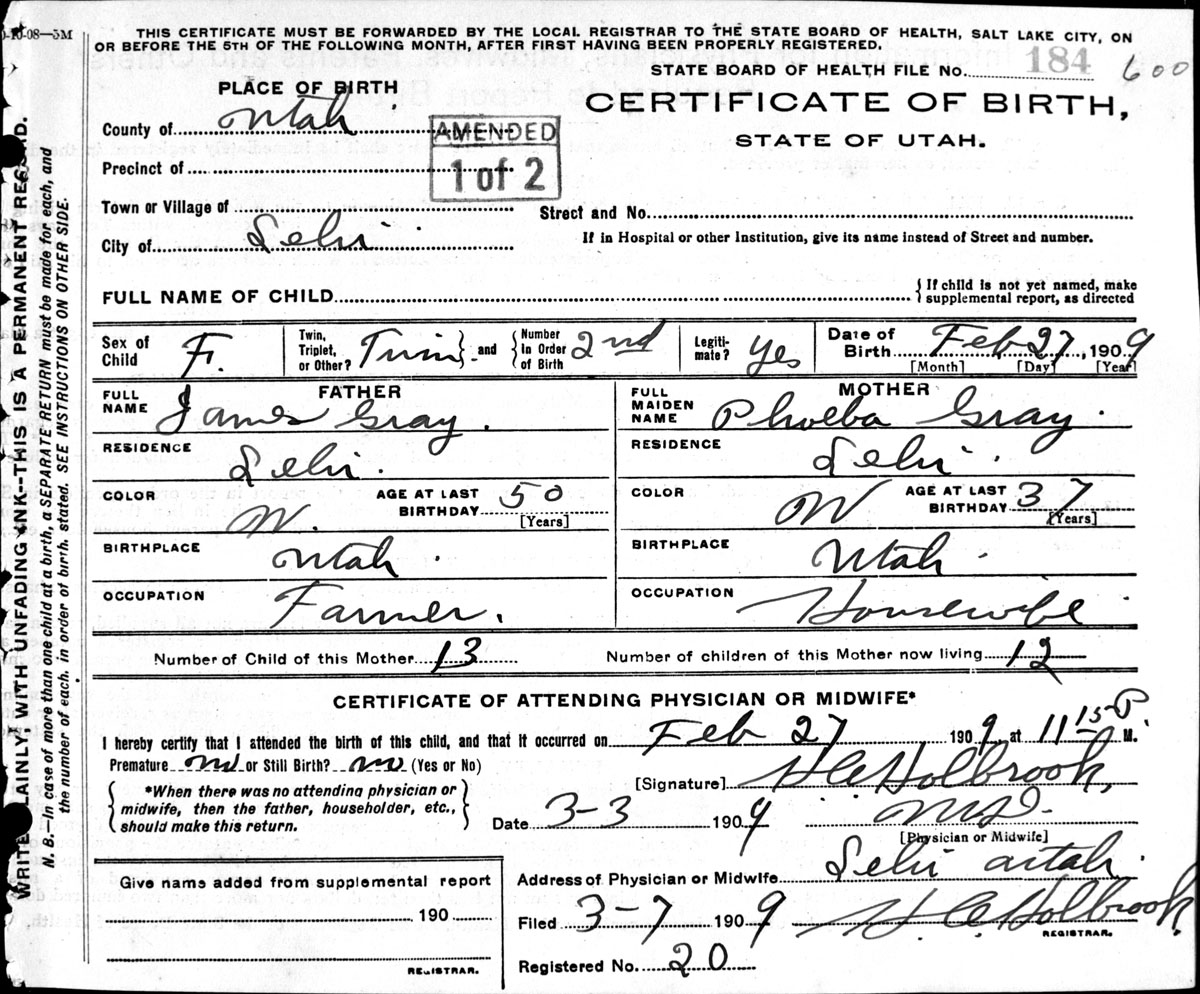 0-10-08—5M
THIS CERTIFICATE MUST BE FORWARDED BY THE LOCAL REGISTRAR TO THE STATE BOARD OF HEALTH, SALT LAKE CITY, ON
OR BEFORE THE 5TH OF THE FOLLOWING MONTH, AFTER FIRST HAVING BEEN PROPERLY REGISTERED.
STATE BOARD OF HEALTH FILE No. 184 600
PLACE OF BIRTH
CERTIFICATE OF BIRTH,
STATE OF UTAH.
County of Utah
AMENDED
1 of 2
Precinct of
Town or Village of
Street and No.
City of Lehi
If in Hospital or other Institution, give its name instead of Street and number.
FULL NAME OF CHILD
{ If child is not yet named, make
supplemental report, as directed
Sex of Child F. Twin, Triplet, or Other? Twin } and { Number In Order of Birth 2nd Legiti-mate? Yes Date of Birth Feb 27, 1909
[Month] [Day] [Year]
FATHER
FULL NAME James Gray.
RESIDENCE Lehi.
COLOR W. AGE AT LAST BIRTHDAY 50
[Years]
BIRTHPLACE Utah.
OCCUPATION Farmer.
MOTHER
FULL MAIDEN NAME Phoeba Gray.
RESIDENCE Lehi.
COLOR W AGE AT LAST BIRTHDAY 37
[Years]
BIRTHPLACE Utah.
OCCUPATION Housewife
Number of Child of this Mother 13 Number of children of this Mother now living 12
CERTIFICATE OF ATTENDING PHYSICIAN OR MIDWIFE*
I hereby certify that I attended the birth of this child, and that it occurred on Feb 27 1909, at 11 15 P. M.
Premature no or Still Birth? no (Yes or No)
[Signature] H C Holbrook,
{ *When there was no attending physician or
midwife, then the father, householder, etc.,
should make this return. }
Date 3-3 1909 M.D.
[Physician or Midwife]
Give name added from supplemental report
190
REGISTRAR.
Address of Physician or Midwife Lehi Utah.
Filed 3-7 1909 H. C. Holbrook.
REGISTRAR.
Registered No. 20
WRITE PLAINLY, WITH UNFADING INK--THIS IS A PERMANENT RECORD.
N. B.—In case of more than one child at a birth, a SEPARATE RETURN must be made for each, and
the number of each, in order of birth, stated. SEE INSTRUCTIONS ON OTHER SIDE.